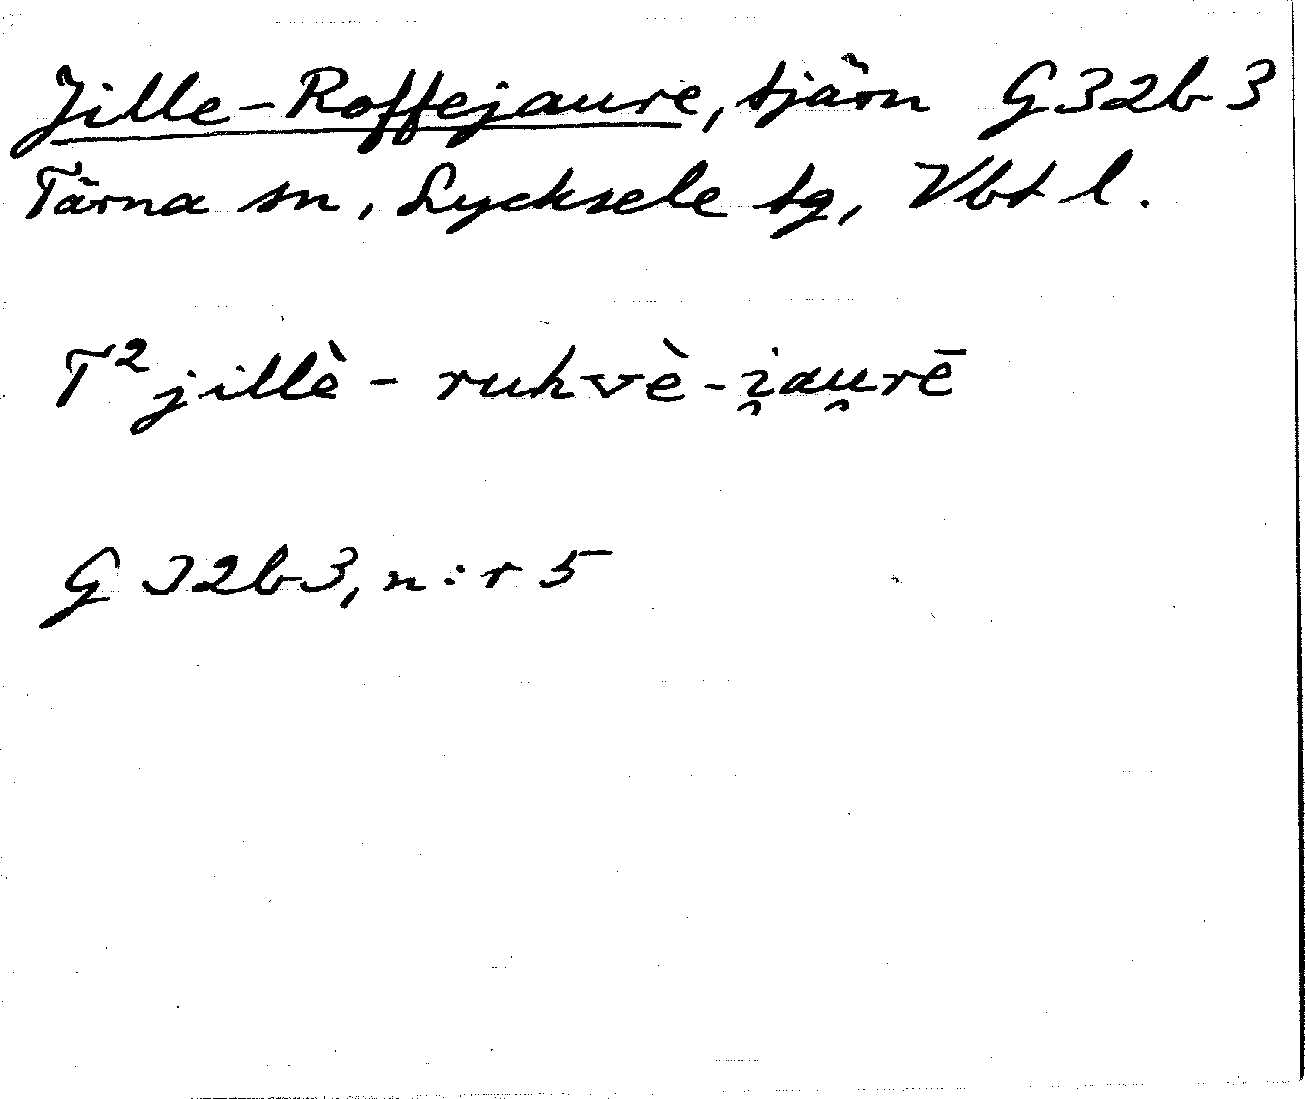 Jille-Roffejaure, tjärn G32b3
Tärna sn, Lycksele tg, Vbt l.
T² jillè - ruhvè - i̯au̯rē
G 32b3, n:r 5